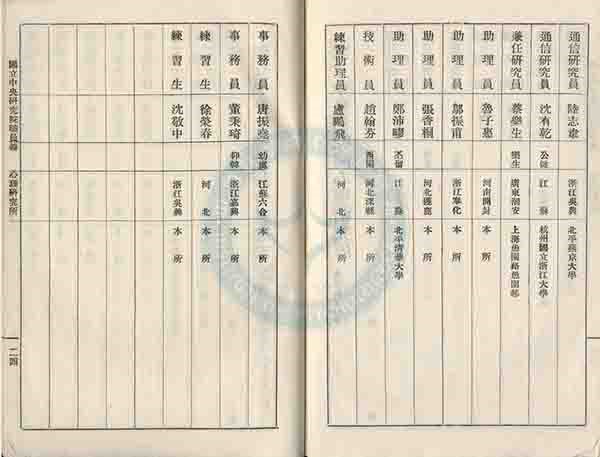 通信研究員 陸志韋 浙江吳興 北平燕京大學
通信研究員 沈有乾 公健 江蘇 杭州國立浙江大學
兼任研究員 蔡樂生 樂生 廣東潮安
助理員 魯子惠 河南開封 本所
助理員 鄒振甫 浙江奉化 本所
助理員 張香桐 河北 本所
助理員 鄭沛疁 丕留 江蘇 北平清華大學
技術員 趙翰芬 西園 河北深縣 本所
練習助理員 盧鶴飛 河北 本所
事務員 唐振堯 幼堯 江蘇六合 本所
事務員 董秉琦 仰韓 浙江嘉興 本所
練習生 徐榮春 河北 本所
練習生 沈敬中 浙江吳興 本所
國立中央研究院職員錄 心理研究所 二四